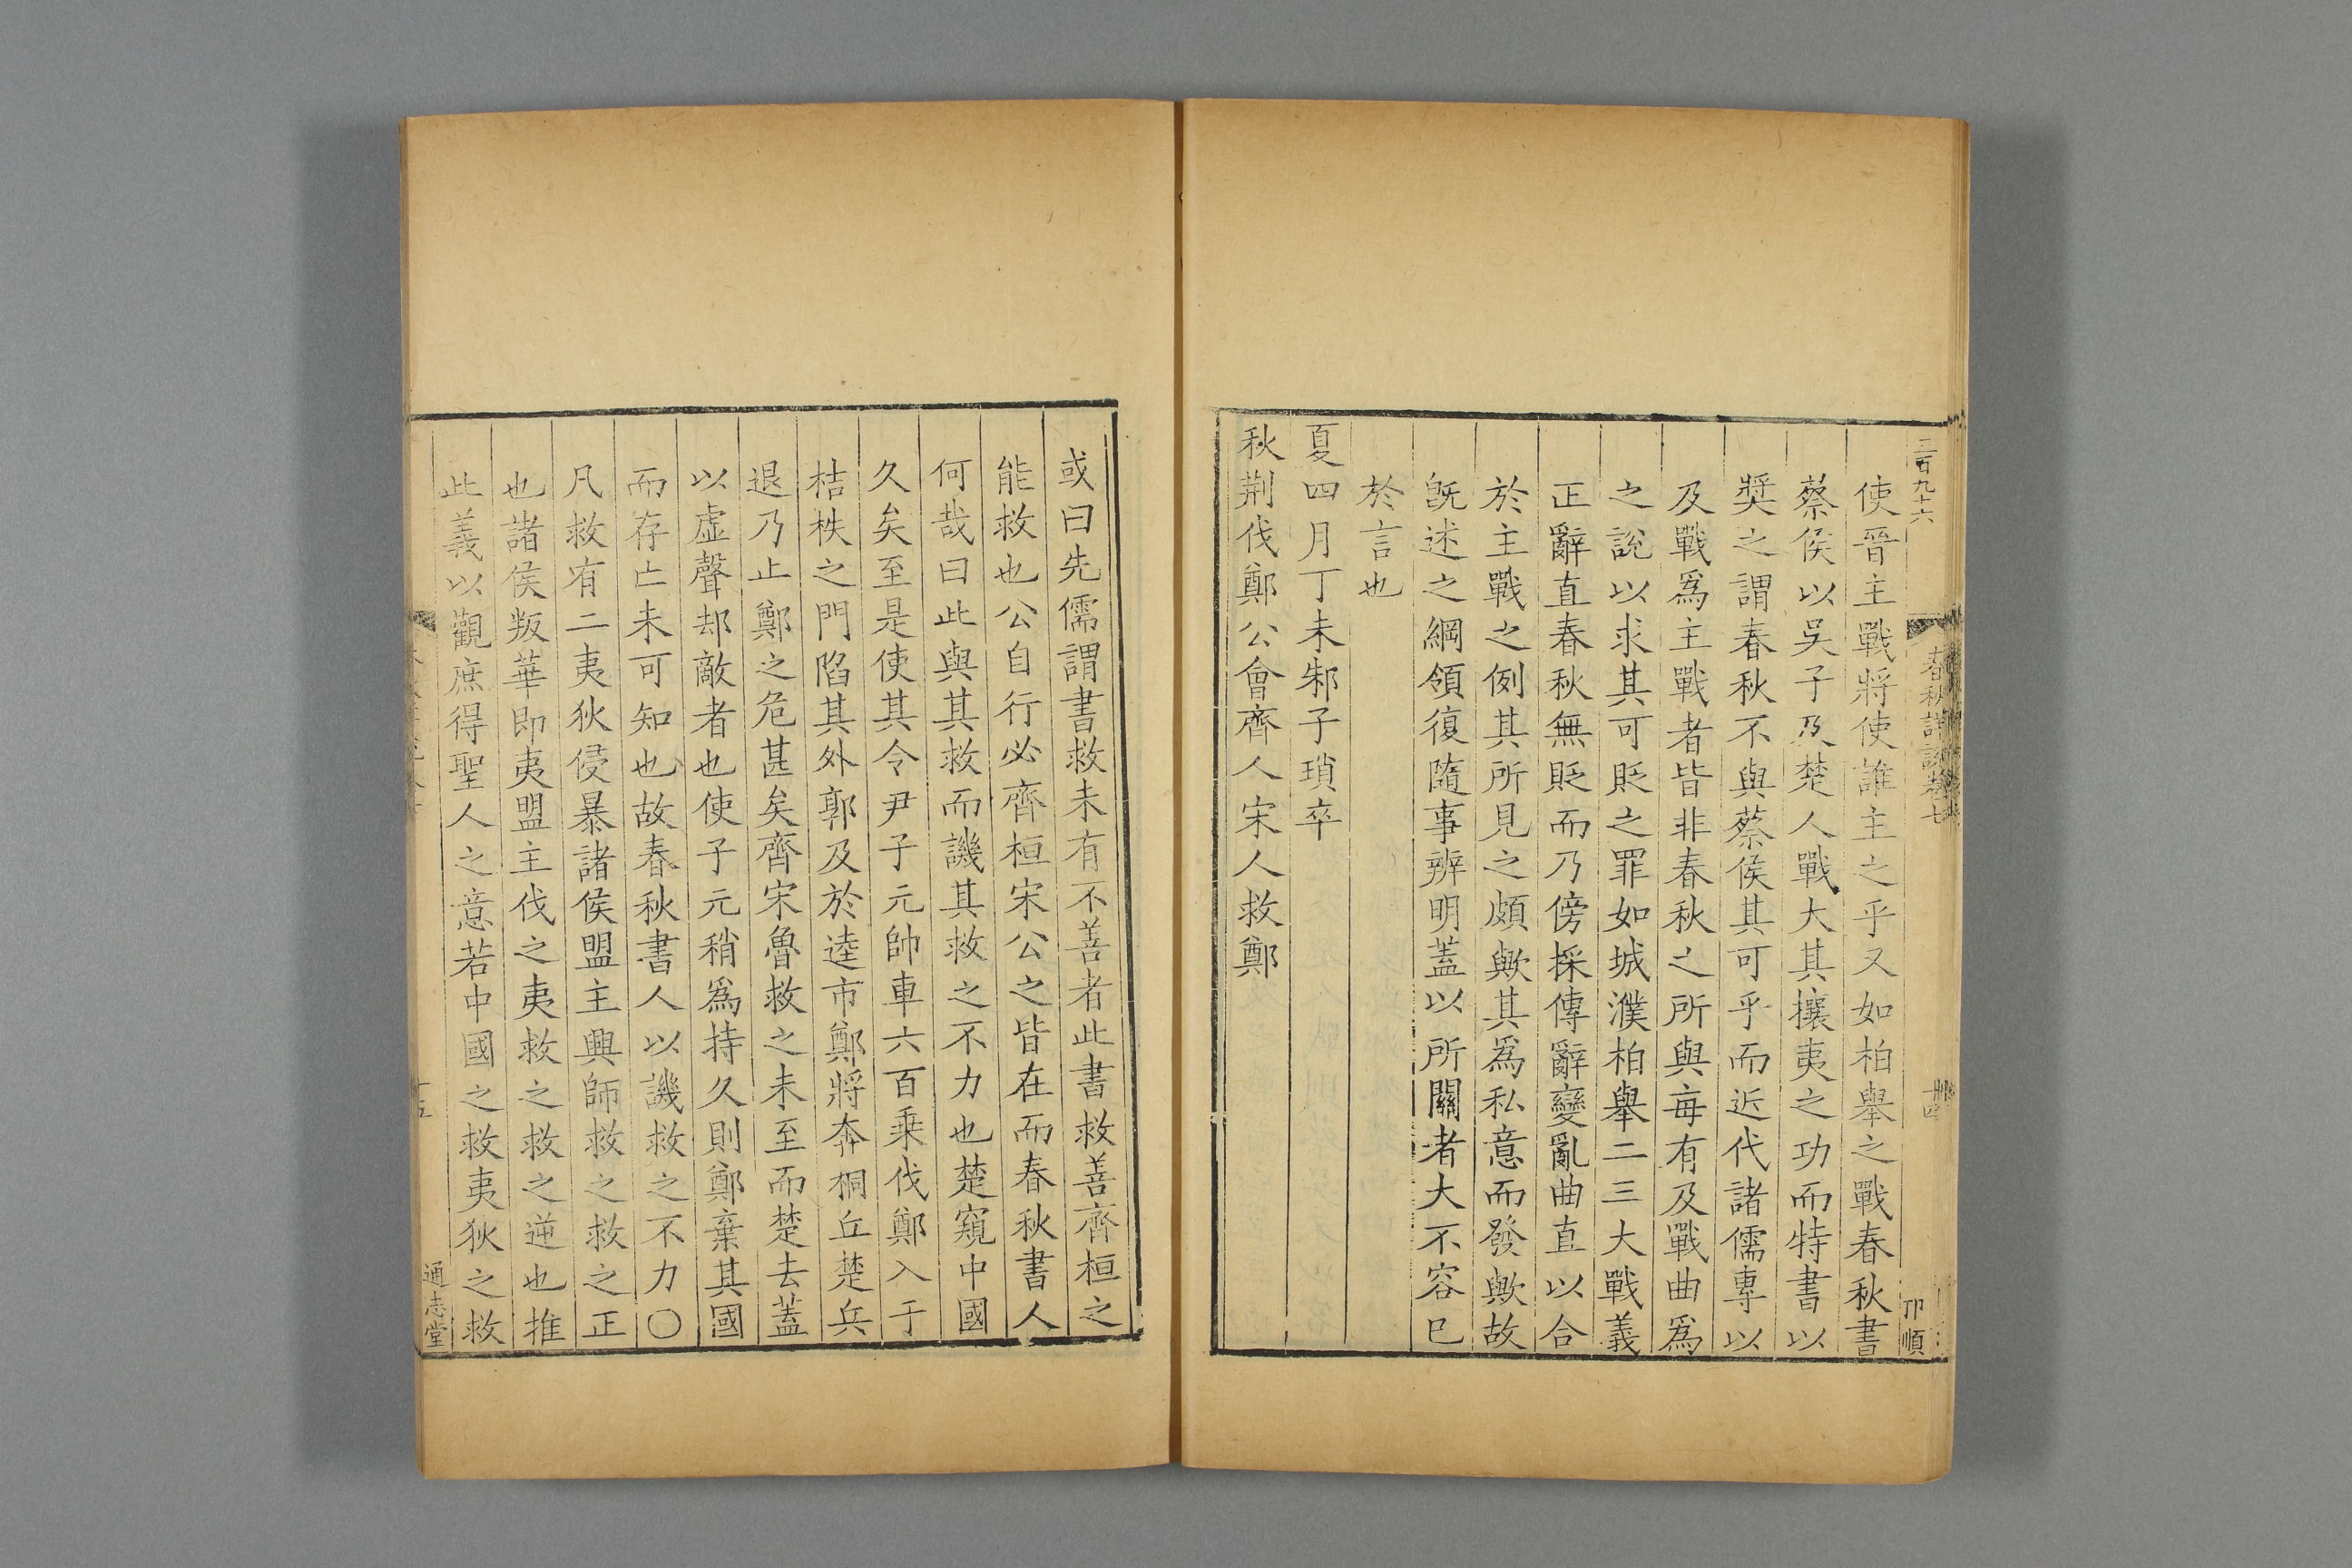 二百九十六
春秋詳說卷七
卌四
卭順
使晉主戰將使誰主之乎又如柏舉之戰春秋書
蔡侯以吳子及楚人戰大其攘夷之功而特書以
奬之謂春秋不與蔡侯其可乎而近代諸儒專以
及戰爲主戰者皆非春秋之所與每有及戰曲爲
之說以求其可貶之罪如城濮柏舉二三大戰義
正辭直春秋無貶而乃傍採傳辭變亂曲直以合
於主戰之例其所見之頗歟其爲私意而發歟故
旣述之綱領復隨事辨明蓋以所關者大不容已
於言也
夏四月丁未邾子瑣卒
秋荆伐鄭公會齊人宋人救鄭
或曰先儒謂書救未有不善者此書救善齊桓之
能救也公自行必齊桓宋公之皆在而春秋書人
何哉曰此與其救而譏其救之不力也楚窺中國
久矣至是使其令尹子元帥車六百乗伐鄭入于
桔柣之門陷其外郭及於逵市鄭將奔桐丘楚兵
退乃止鄭之危甚矣齊宋魯救之未至而楚去蓋
以虚聲却敵者也使子元稍爲持久則鄭棄其國
而存亡未可知也故春秋書人以譏救之不力〇
凡救有二夷狄侵暴諸侯盟主興師救之救之正
也諸侯叛華即夷盟主伐之夷救之救之逆也推
此義以觀庶得聖人之意若中國之救夷狄之救
十五
通志堂